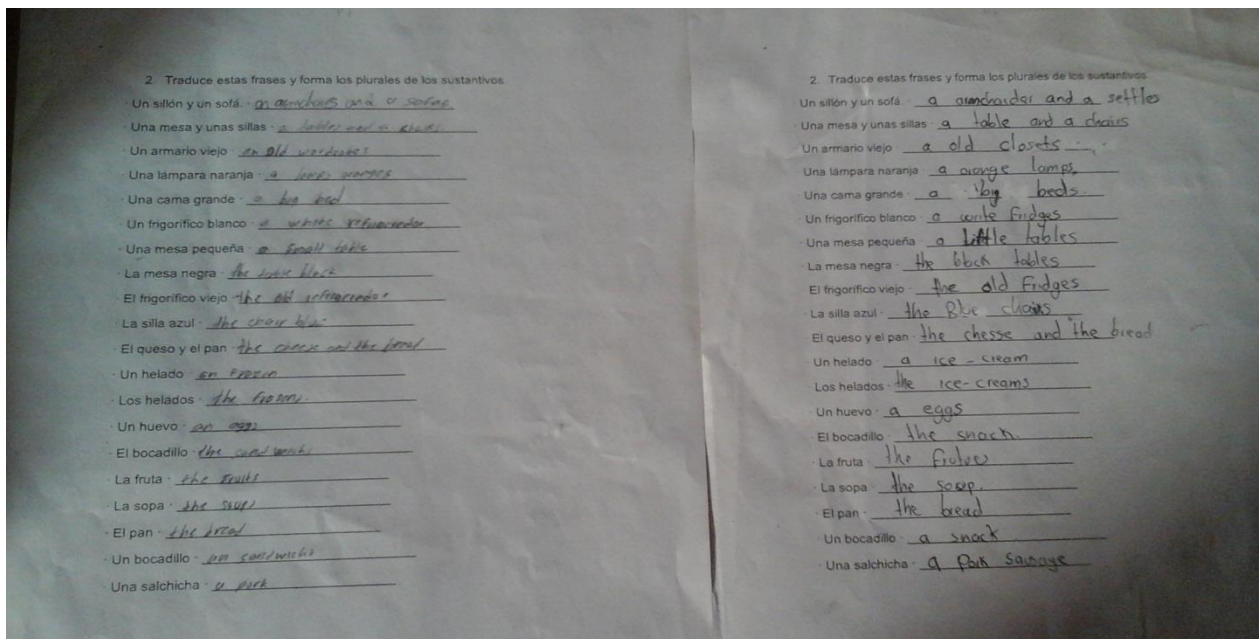 2. Traduce estas frases y forma los plurales de los sustantivos
· Un sillón y un sofá · an armchairs and a sofas
· Una mesa y unas sillas · a tables and a chairs
· Un armario viejo · an old wardrobes
· Una lámpara naranja · a lamps oranges
· Una cama grande · a big bed
· Un frigorífico blanco · a
· Una mesa pequeña · a small table
· La mesa negra · the table black
· El frigorífico viejo · the old
· La silla azul · the chair
· El queso y el pan · the and the
· Un helado · an frozen
· Los helados · the
· Un huevo · an eggs
· El bocadillo · the
· La fruta · the fruits
· La sopa · the
· El pan · the bread
· Un bocadillo · an
· Una salchicha · a pork
2. Traduce estas frases y forma los plurales de los sustantivos
Un sillón y un sofá · a and a settles
· Una mesa y unas sillas · a table and a chairs
Un armario viejo a old closets
Una lámpara naranja a orange lamps.
· Una cama grande · a big beds.
· Un frigorífico blanco · a write fridges
· Una mesa pequeña · a little tables
· La mesa negra · the black tables
El frigorífico viejo · the old fridges
· La silla azul · the Blue chairs
El queso y el pan · the chesse and the bread
Un helado · a ice - cream
Los helados · the ice-creams
· Un huevo · a eggs
· El bocadillo · the snack.
· La fruta · the
· La sopa · the
· El pan · the bread
· Un bocadillo · a snack
· Una salchicha · a pork sausage